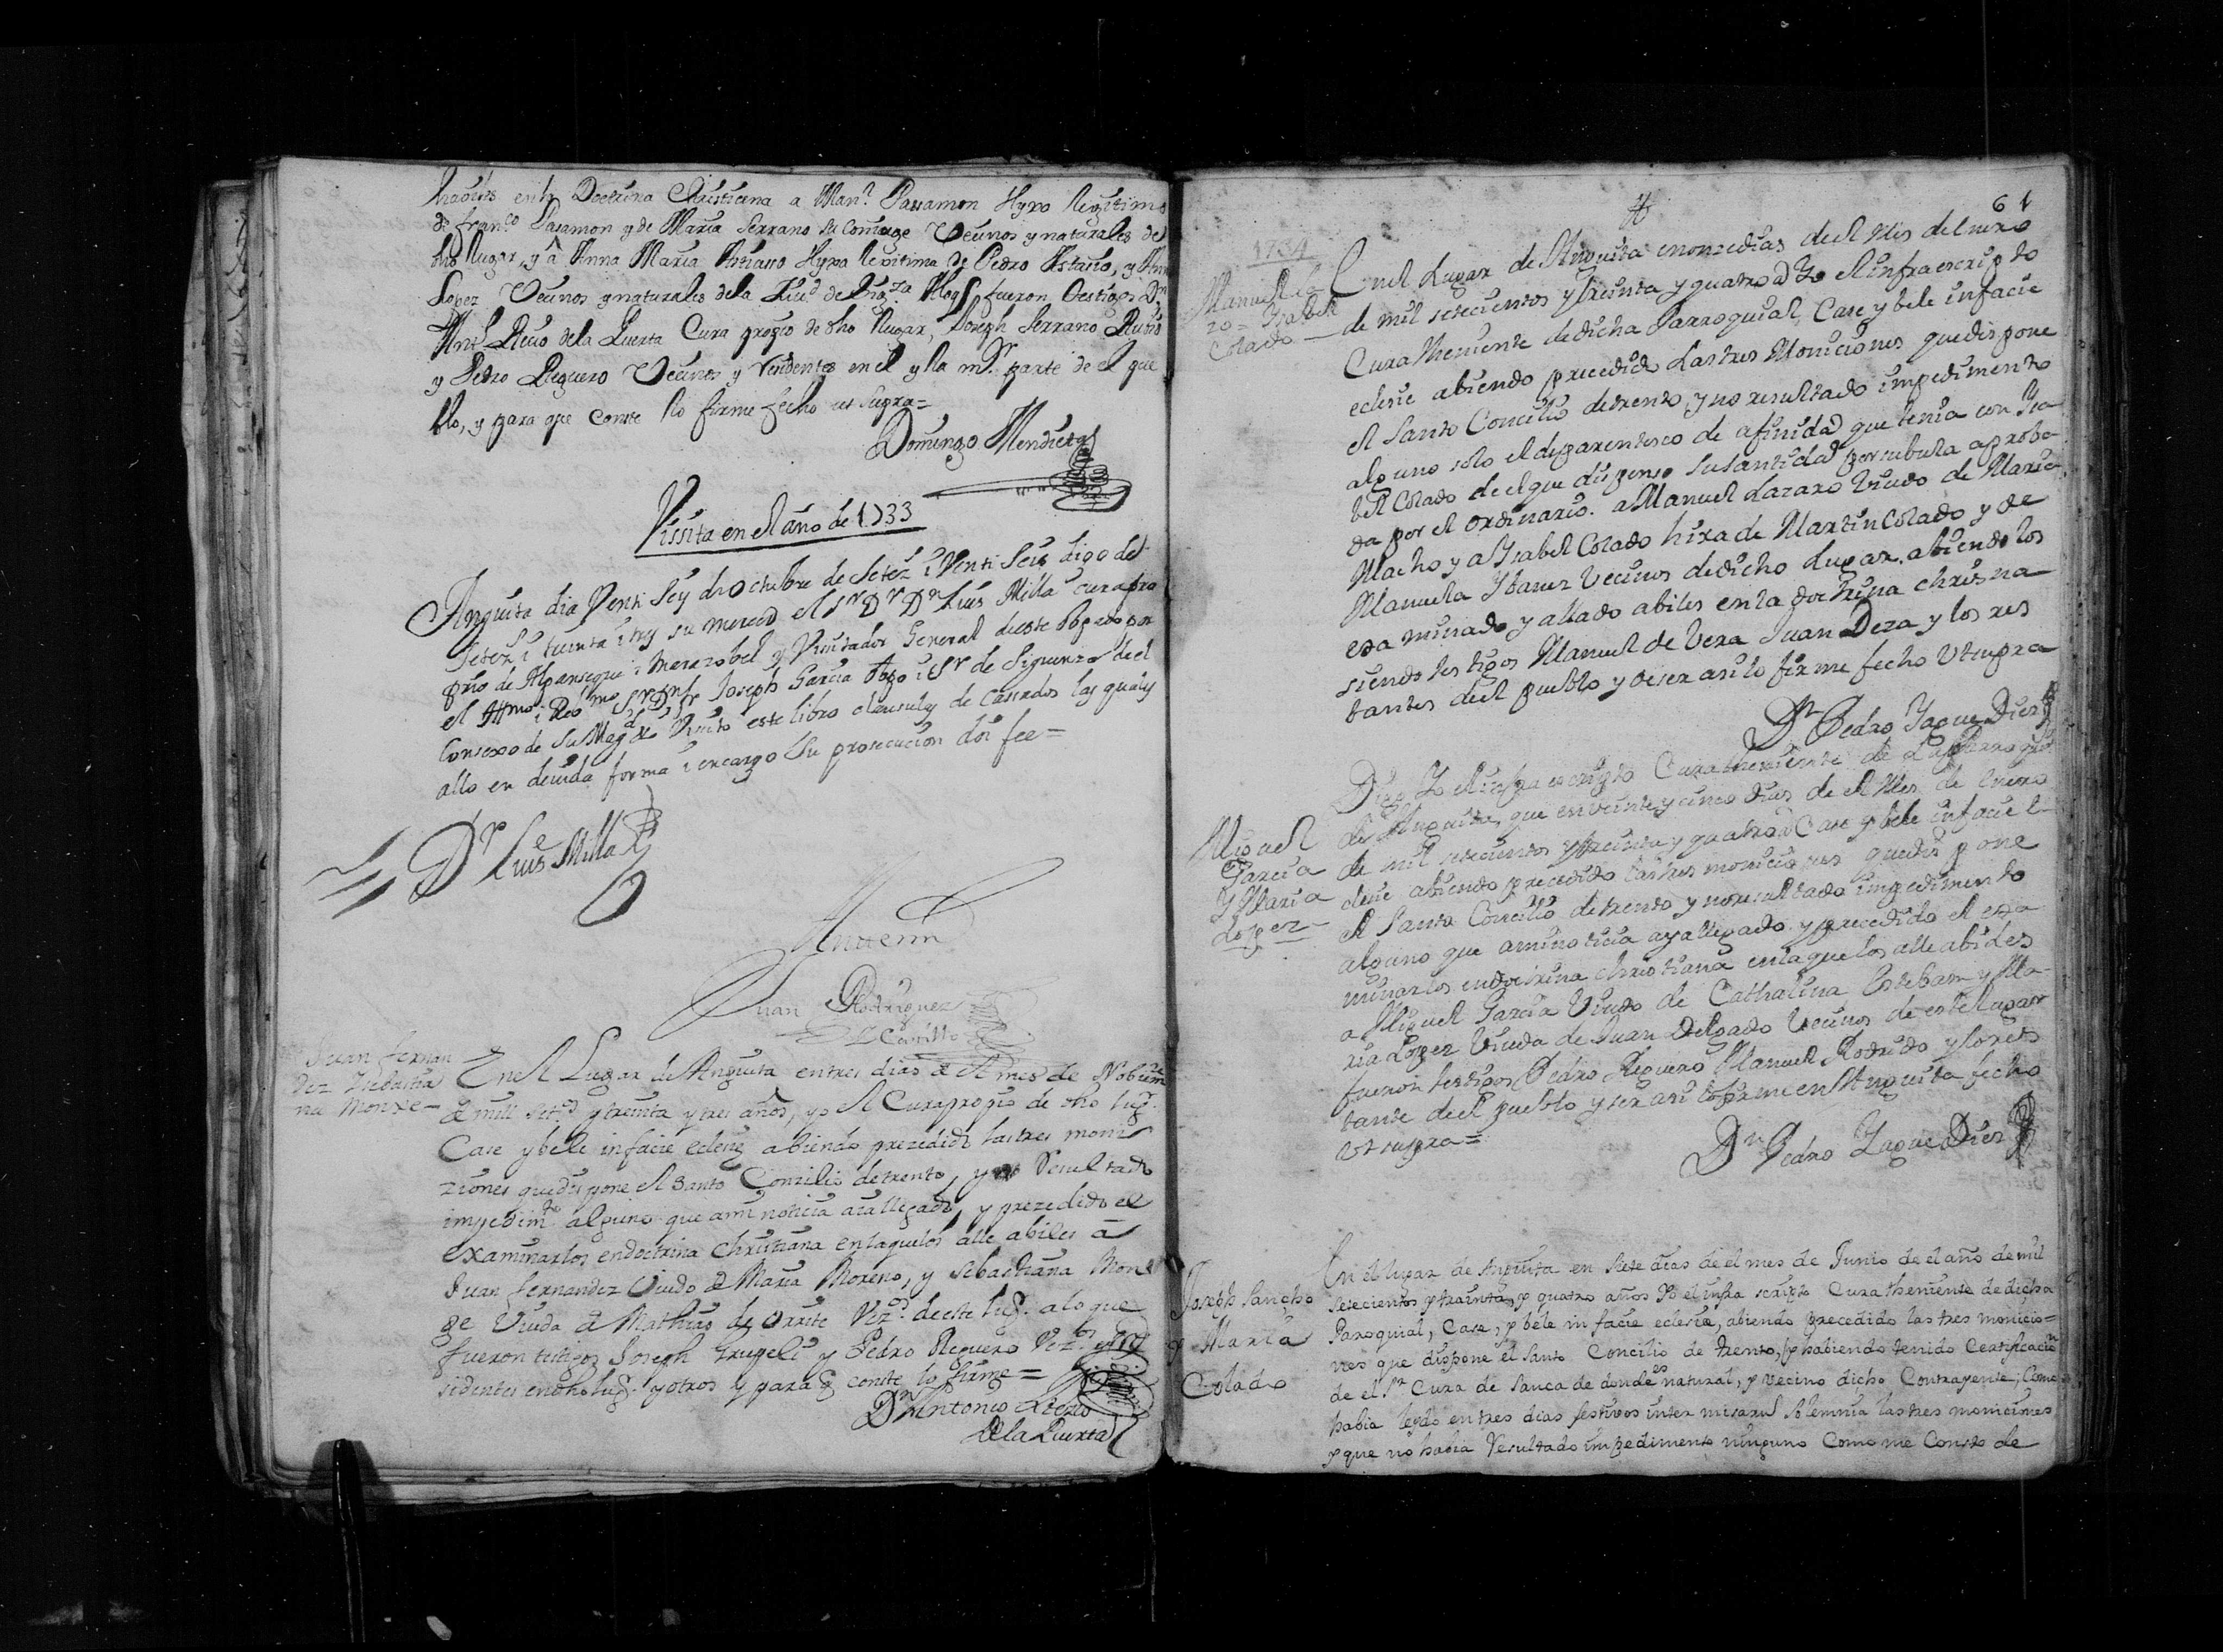 habiles en la Doctrina Christiana a Man.l Passamon Hyxo legitimo
de Fran.co Pasamon y de Maria Serrano su Coniuge Vecinos y naturales de
dho Lugar, y â Anna Maria Hyxa legitima de Pedro y Ana
Lopez Vecinos y naturales dela Ciu.d de fueron testigos Dn
Ant. Recio dela Puerta Cura propio de dho Lugar, Joseph Serrano Rubio
y Pedro Reguero Vecinos y Residentes en el y la m.r parte de el pue
blo, y para que conste lo firme fecho ut supra=
Domingo Mendieta
Vissita en el año de 1733
Anguita dia Venti Seis de Octubre de Setez.s i Venti Seis digo de
Setez.s i treinta i tres su merced el S.r D.r D.n Luis Milla cura pro
prio de Alpanseque i Merazobel y Visitador General deeste Obpado por
el Illmo i Rdo mo S.r Dn fr Joseph Garcia Obpo i S.r de Siguenza del
Consexo de Su Mag.d Visito este libro de Casados las quales
allo en devida forma i encargo Su prosecucion doi fee=
D.r Luis Milla
Antemi
Juan Rodriguez
Juan Fernan
dez Isebastia
na Monxe=
En el Lugar de Anguita en tres dias de el mes de Nobiem.re
de mill set.s y treinta y tres años, yo el Cura propio de dho lug.r
Case y bele in facie eclesiȩ abiendo prezedido las tres moni
ziones que dispone el Santo Conzilio de trento, y no Resultado
impedim.to alguno que ami noticia aia llegado, y prezedido el
examinarlos en doctrina Christiana en laquelos alle abiles a
Juan Fernandez Viudo de Maria Moreno, y Sebastiana Mon
ge Viuda de Mathias de Vez.s deeste lug.r a lo que
fueron testigos Joseph y Pedro Reguero Vez.os y Re
sidentes en dho lug.r y otros y para q conste lo firme=
Dn Antonio Rezio
de la Puerta
61
1734
Manuel Laza
ro= Isabel
Colado
En el Lugar de Anguita en onze dias de el Mes de Enero
de mil setecientos y treinta y quatro a.s Yo el infraescripto
Cura theniente de dicha Parroquial, Case y bele infacie
eclesie abiendo precedido Las tres Moniciones que dispone
el Santo Concilio de trento, y no resultado impedimento
alguno solo el de parentesco de afinidad que tenia con Isa
bel Colado de el que dispenso Su Santidad por su bula aproba
da por el ordinario. a Manuel Lazaro Viudo de Maria
Macho y a Isabel Colado hixa de Martin Colado y de
Manuela Ybanez Vecinos de dicho Lugar, abiendolos
esaminado y allado abiles en la doctrina chris.na
siendo testigos Manuel de Vera Juan Deza y los res
tantes de el pueblo y deser asi lo firme fecho Ut supra
Dn Pedro Yague Diez
Miguel
Garcia
Y Maria
Lopez=
Digo Yo el infra escripto Cura theniente de La Parroquial
de Anguita, que en veinte y cinco dias de el Mes de Enero
de mil setecientos y treinta y quatro a.s Case y bele infacie e
clesie abiendo precedido las tres moniciones que dispone
el Santo Concilio de trento y no resultado impedimento
alguno que ami noticia aya llegado y precedido el esa
minarlos en doctrina christiana en laque los alle abiles
a Miguel Garcia Viudo de Cathalina Esteban y Ma
ria Lopez Viuda de Juan Delgado Vecinos de este lugar
fueron testigos Pedro Reguero Manuel Rodrido y los res
tante de el pueblo y ser asi lo firme en Anguita fecho
Ut supra=
Dn Pedro Yague Diez
Joseph Sancho
y Maria
Colado
En el lugar de Anguita en siete dias de el mes de Junio de el año de mil
setecientos y trainta, y quatro años Yo el infra scripto Cura theniente de dicha
Paroquial, Case, y bele in facie eclesiæ, abiendo precedido las tres monicio=
nes que dispone el Santo Concilio de trento, y habiendo tenido Certificacion
de el S.r Cura de Sauca de donde es natural, y vecino dicho Contrayente, Como
habia leydo en tres dias festivos inter misarum Solemnia las tres moniciones
y que no habia Resultado impedimento ninguno Como me Consto de